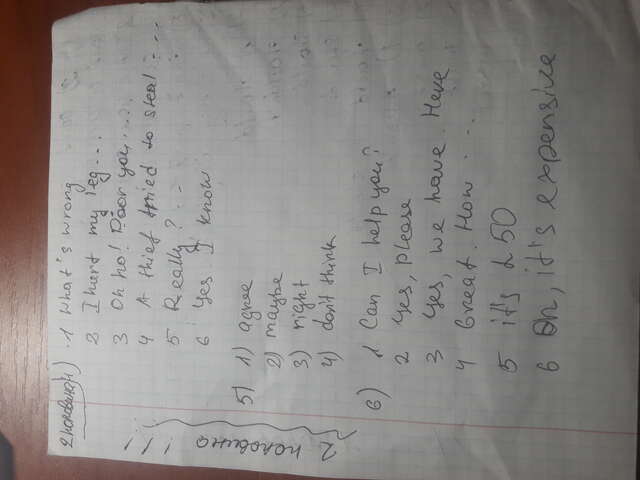 2 половина 4) .1 What's wrong
2 I hurt my leg...
3 Oh no! Poor you...
4 A thief tried to steal ....
5 Really? ...
6 Yes I know
2 половина !!!
5) 1) agree
2) maybe
3) right
4) don't think
6) 1 Can I help you?
2 Yes, please
3 Yes, we have. Here
4 Great. How ...
5 it's £50
6 Oh, it's expensive